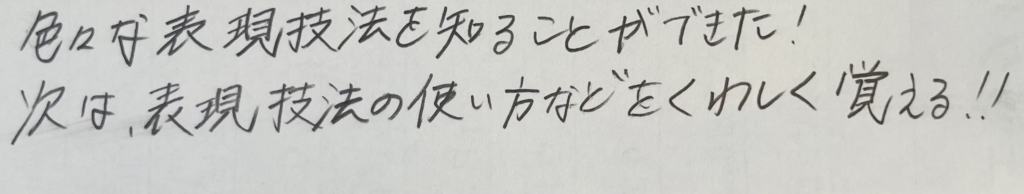 色々な表現技法を知ることができた!
次は、表現技法の使い方などをくわしく覚える!!